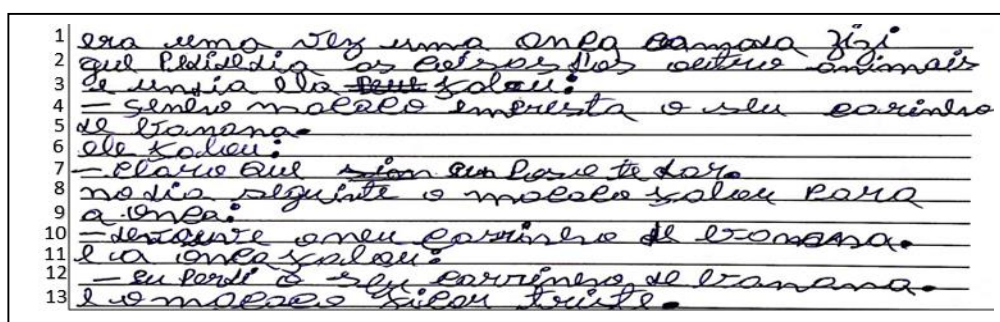 1 era uma vez uma onça camada zizi
2 que pididia as coisas dos outro animais
3 e undia ela falou:
4 – senhro macaco empresta o seu carinho
5 de banana.
6 ele falou:
7 – claro que eu poso te dar.
8 no dia seguinte o macaco falou para
9 a onça:
10 – devouve o meu carrinho de banana.
11 e a onça falou:
12 – eu perdi o seu carrinho de banana.
13 e o macaco ficou triste.